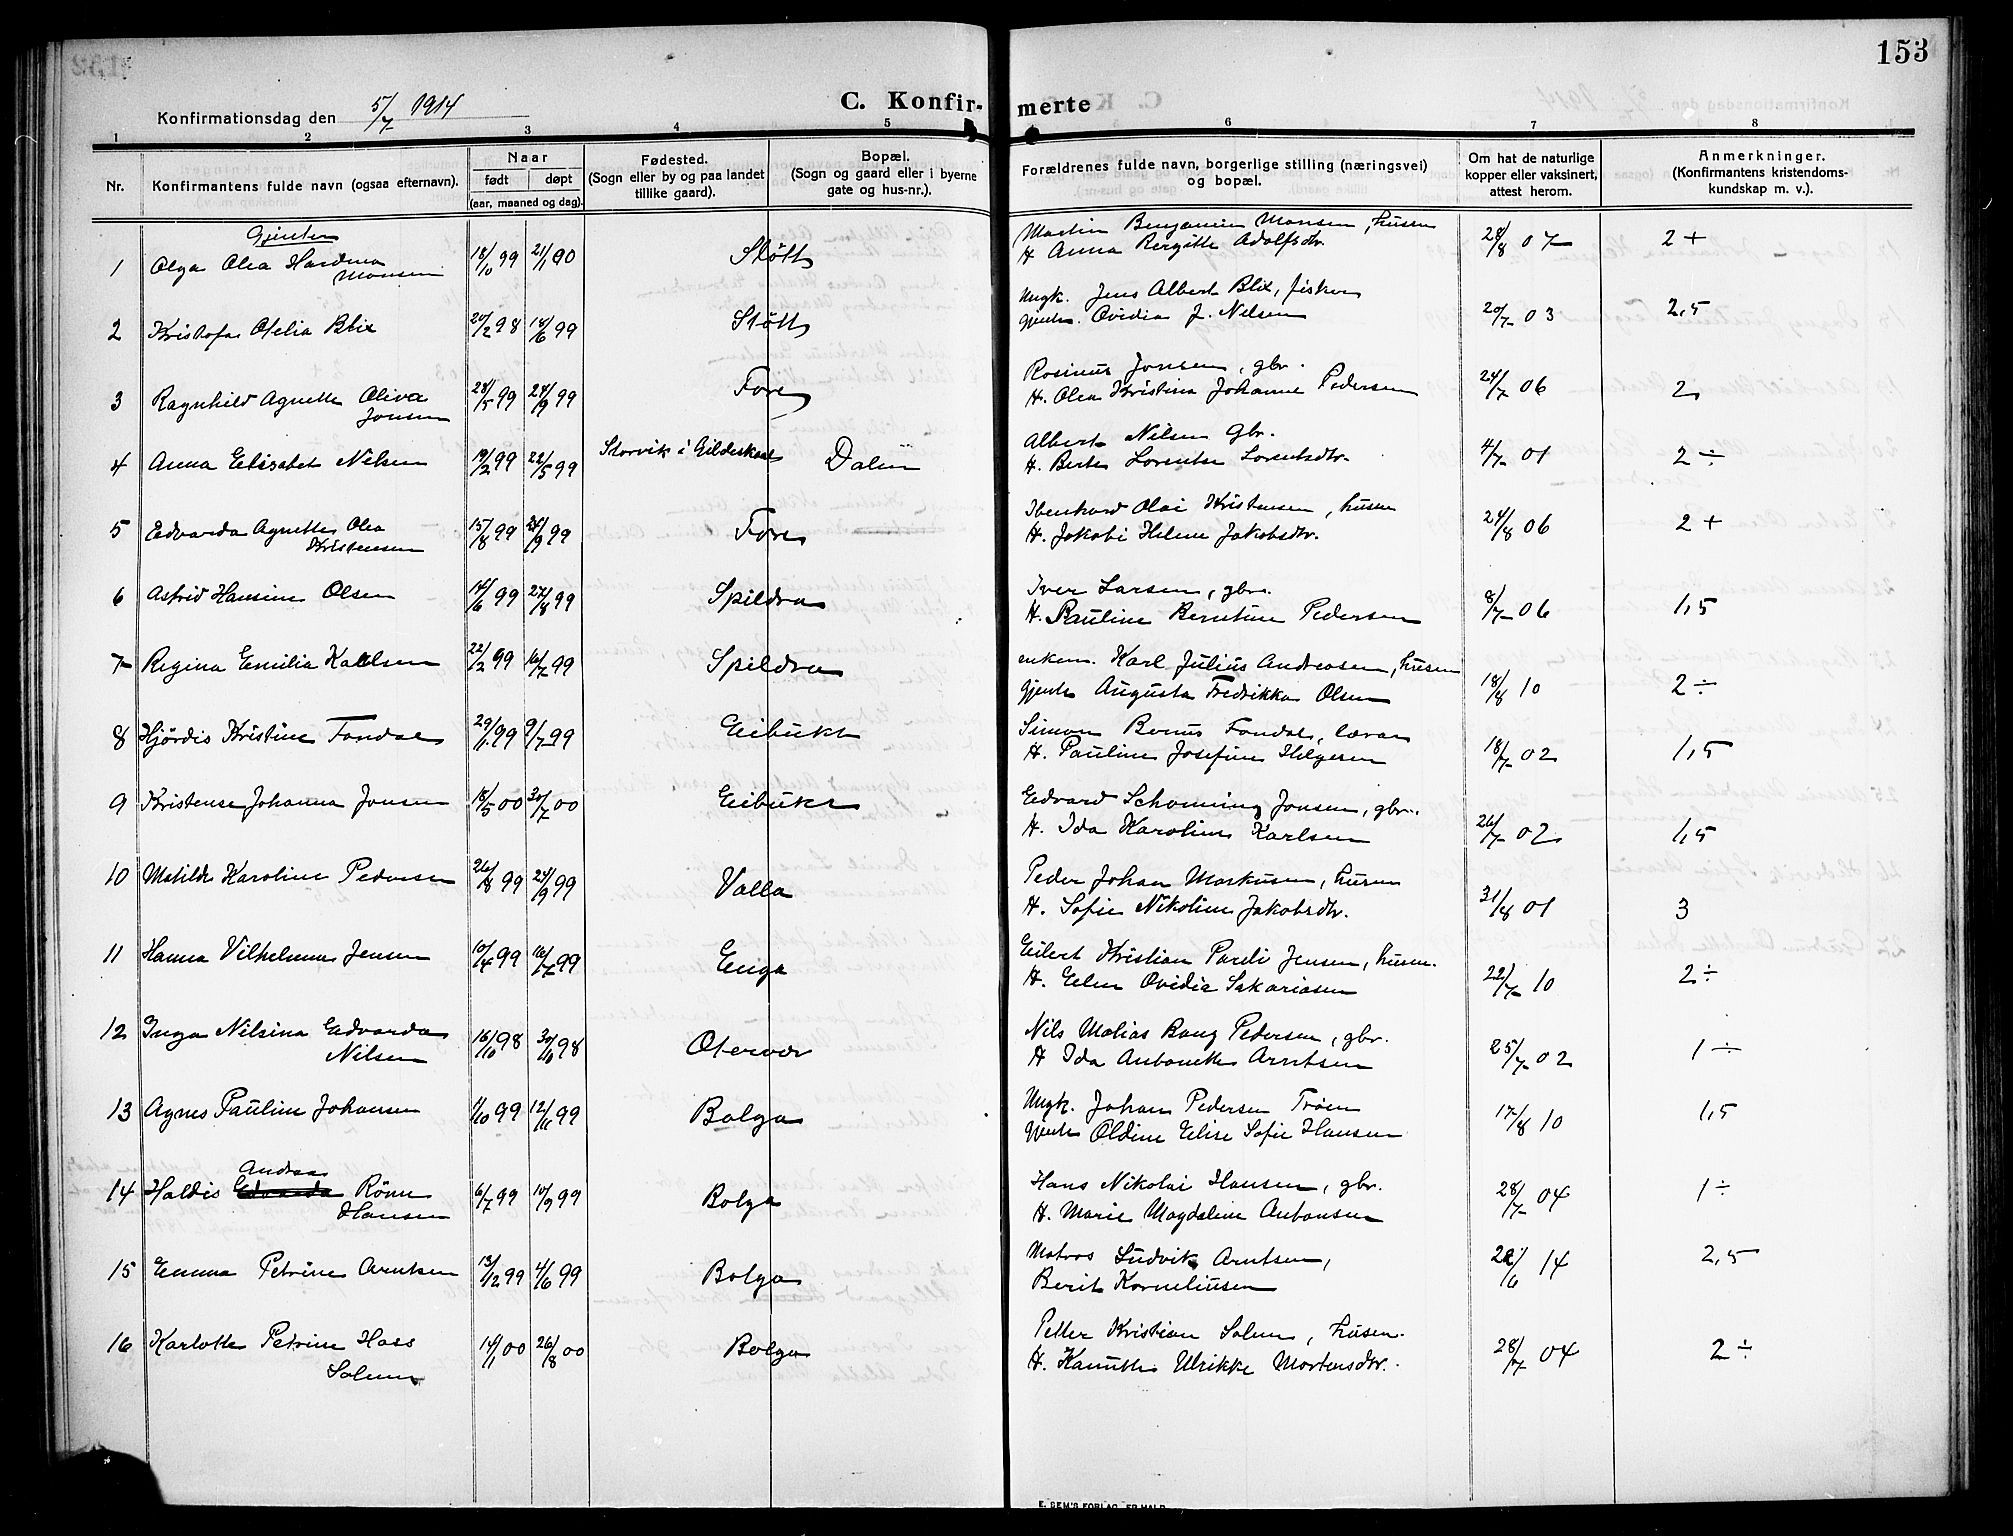 153
Konfirmationsdag den 5/7 1914
C. Konfir-merte
1 2 3 4 5 6 7 8
Nr.
Konfirmantens fulde navn (ogsaa efternavn).
Naar
født døpt
(aar, maaned og dag).
Fødested.
(Sogn eller by og paa landet
tillike gaard).
Bopæl.
(Sogn og gaard eller i byerne
gate og hus-nr.).
Forældrenes fulde navn, borgerlige stilling (næringsvei)
og bopæl.
Om hat de naturlige
kopper eller vaksinert,
attest herom.
Anmerkninger.
(Konfirmantens kristendoms-
kundskap m. v.).
Gjenter
1 Olga Olea Hardine Monsen 18/10 99 21/1 00 Støtt
Martin Benjamin Monsen, husm
H Anna Bergitte Adolfsdtr. 28/8 07 2+
2 Kristofa Otelia Blix 20/2 98 18/6 99 Støtt
Ungk. Jens Albert Blix, fisker
Gjente. Ovidia J. Nelsen 20/7 03 2,5
3 Ragnhild Agnette Oliva Jonsen 28/5 99 24/9 99 Fore
Rosinus Jonsen, gbr.
H. Olea Kristina Johanne Pedersen 24/7 06 2
4 Anna Elisabet Nilsen 19/2 99 22/5 99 Storvik i Gildeskaal Dalen
Albert Nilsen Gbr.
H. Berte Lorentse Lorentsdtr. 4/7 01 2÷
5 Edvarda Agnette Olea Kristensen 15/8 99 24/9 99 Fore
Ibenhard Olai Kristensen, husm
H. Jakobi Helene Jakobsdtr. 24/8 06 2+
6 Astrid Hansine Olsen 14/6 99 27/8 99 Spildra
Iver Larsen, gbr.
H. Pauline Berntine Pedersen 8/7 06 1,5
7 Regina Emilia Karlsen 22/2 99 16/7 99 Spildra
enkem. Karl Julius Andreasen, husm
Gjente Augusta Fredrikka Olsen 18/8 10 2÷
8 Hjördis Kristine Fondal 29/1 99 9/7 99 Eibukt
Simon Bonus Fondal, lærer
H. Pauline Josefine Helgesen 18/7 02 1,5
9 Kristense Johanna Jonsen 18/5 00 30/7 00 Eibukt
Edvard Schønning Jonsen, gbr.
H. Ida Karoline Karlsen 26/7 02 1,5
10 Matilde Karoline Pedersen 26/8 99 24/9 99 Valla
Peder Johan Markusen, husm
H. Sofie Nikoline Jakobsdtr. 31/8 01 3
11 Hanna Vilhelmine Jensen 10/4 99 16/7 99 Enga
Eilert Kristian Pareli Jensen, husm.
H. Elen Ovidia Sakariasen 22/7 10 2÷
12 Inga Nilsina Edvarda Nilsen 16/10 98 30/10 98 Oterver
Nils Matias Bang Pedersen, gbr.
H Ida Antonette Arntsen 25/7 02 1÷
13 Agnes Pauline Johansen 1/10 99 12/11 99 Bolga
Ungk. Johan Pedersen Trøen
Gjente Oldine Elise Sofie Hansen 17/8 10 1,5
14 Haldis Edvarda Andrea Rönne Hansen 6/7 99 10/9 99 Bolga
Hans Nikolai Hansen, gbr.
H. Marie Magdalene Antonsen 28/7 04 1÷
15 Emma Petrine Arntsen 13/12 99 4/6 99 Bolga
Matros Ludvik Arntsen,
Berit Korneliusen 28/6 14 2,5
16 Karlotte Petrine Hass Solem 14/1 00 26/8 00 Bolga
Petter Kristian Solem, husm.
H. Kanutte Ulrikke Mortensdtr. 28/7 04 2÷